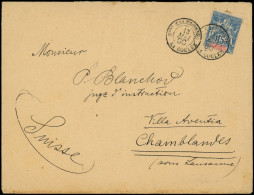 Monsieur
P. Blanchod
juge d'instruction
Villa Aventia
Chamblandes
(sous Lausanne)
Suisse